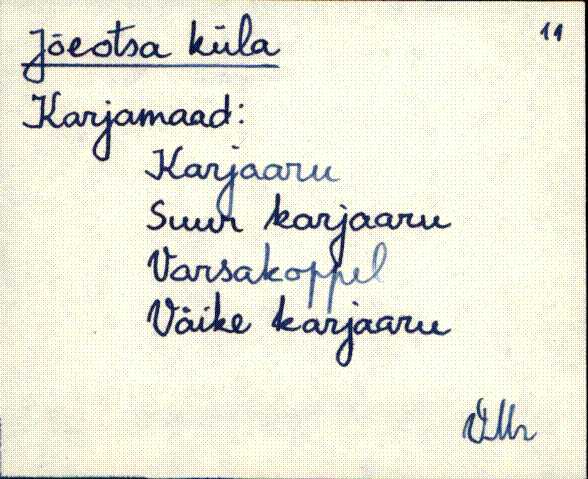 Jõeotsa küla
11
Karjamaad:
Karjaaru
Suur karjaaru
Varsakoppel
Väike karjaaru